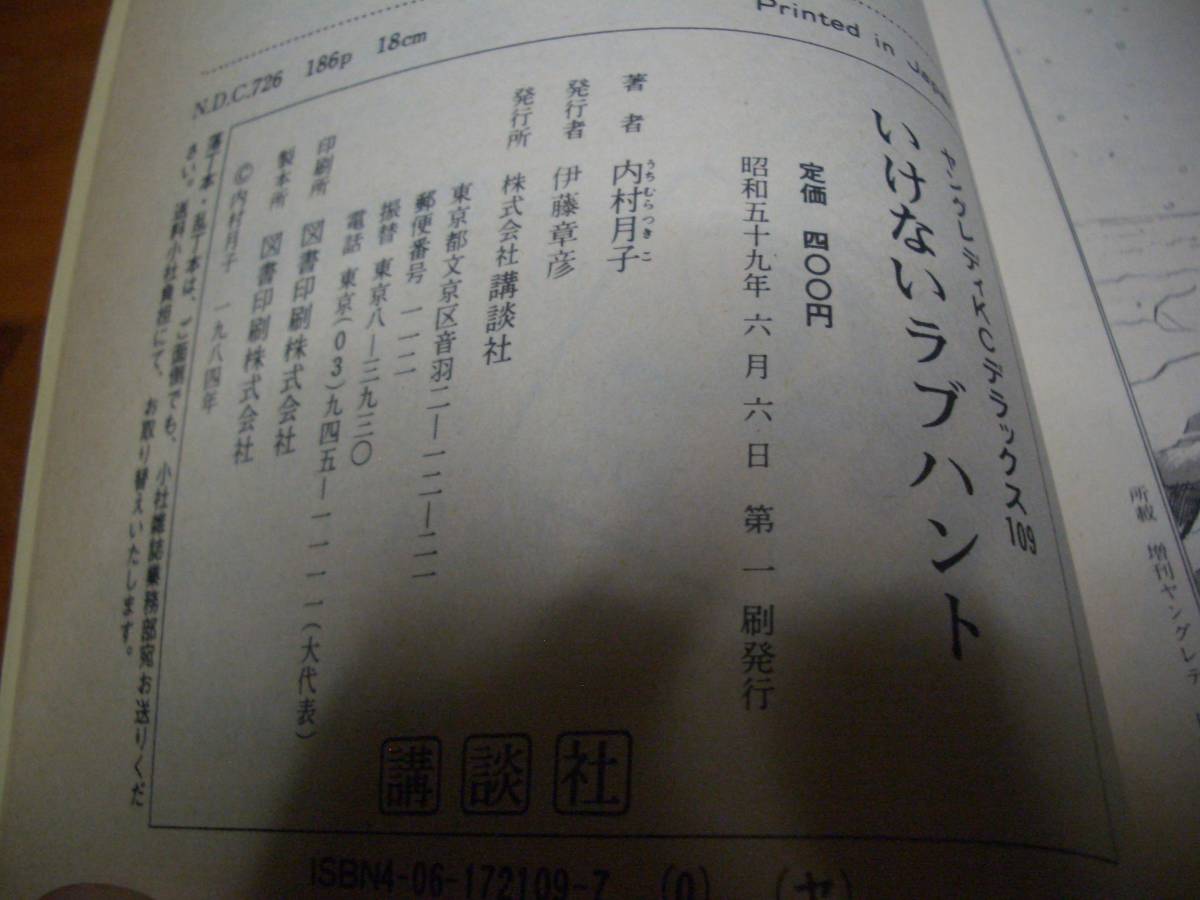 Printed in Japan
N.D.C.726 186p 18cm
ヤングレディKCデラックス109
いけないラブハント
定価 四〇〇円
昭和五十九年六月六日 第一刷発行
著者 内村月子
うちむらつきこ
発行者 伊藤章彦
発行所 株式会社講談社
東京都文京区音羽二―一二―二一
郵便番号 一一二
振替 東京八―三九三〇
電話 東京(03)九四五―一一一一(大代表)
印刷所 図書印刷株式会社
製本所 図書印刷株式会社
©内村月子 一九八四年
落丁本・乱丁本は、ご面倒でも、小社雑誌業務部宛お送りくだ
さい。送料小社負担にて、お取り替えいたします。
講談社
ISBN4-06-172109-7 (0) (ヤ)
所載 増刊ヤングレデ